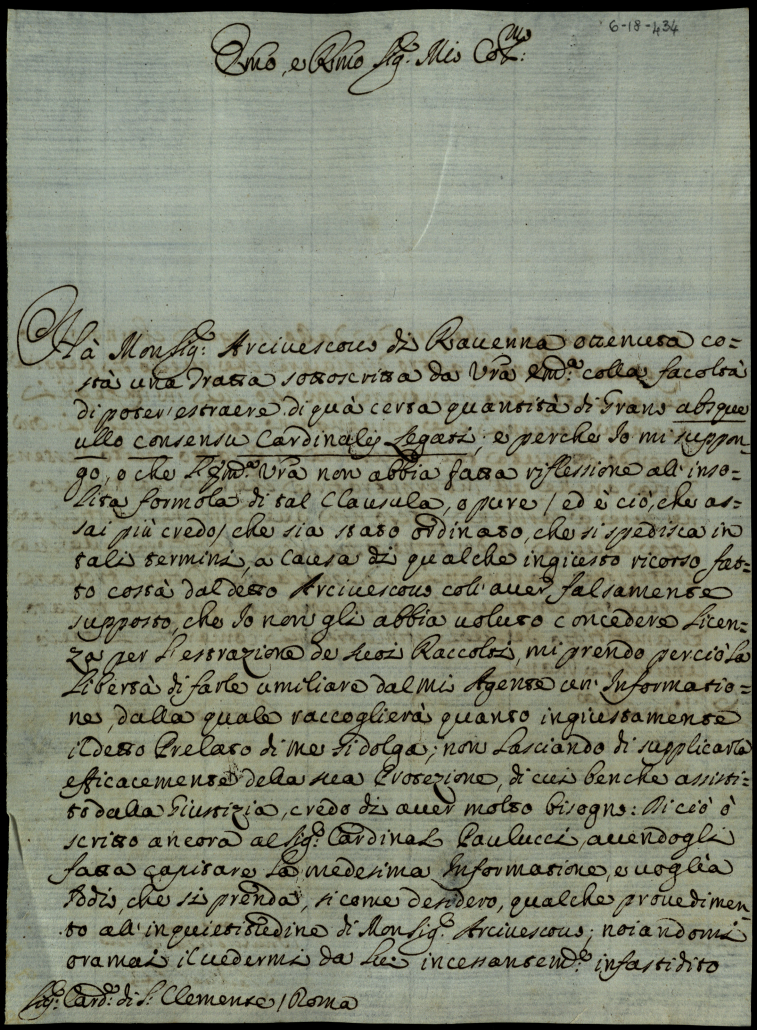 6-18-434
Emo, e Rmo Sig.r Mio Col.mo
Hà Monsig.r Arcivescovo di Ravenna ottenuta co-
stà una Tratta sottoscritta da Vrã Em.a colla facoltà
di poter' estraere di quà certa quantità di Grano absque
ullo consensu Cardinalis Legati; e perche Io mi suppon-
go, o che l'Em.a Vrã non abbia fatta riflessione all'inso-
lita formola di tal Clausula, o pure / ed è ciò, che as-
sai più credo / che sia stato ordinato, che si spedisca in
tali termini, a causa di qualche ingiusto ricorso fat-
to costà dal detto Arcivescovo coll'aver falsamente
supposto, che Io non gli abbia voluto concedere licen-
za per l'estrazione de suoi Raccolti, mi prendo perciò la
libertà di farle umiliare dal mi Agente un' Informatio-
ne, dalla quale raccoglierà quanto ingiustamente
il detto Prelato di me si dolga; non lasciando di supplicarla
efficacemente della sua Protezione, di cui benche assisti-
to dalla Giustizia, credo di aver molto bisogno: Di ciò ò
scritto ancora al Sig.r Cardinal Paulucci, avendogli
fatta capitare la medesima Informatione, e voglia
Iddio, che si prenda, sicome desidero, qualche provedimen-
to all'inquietitudine di Monsig.r Arcivescovo; noiandomi
oramai il vedermi da Lui incessantem.te infastidito
Sig.r Card.l di S. Clemente / Roma